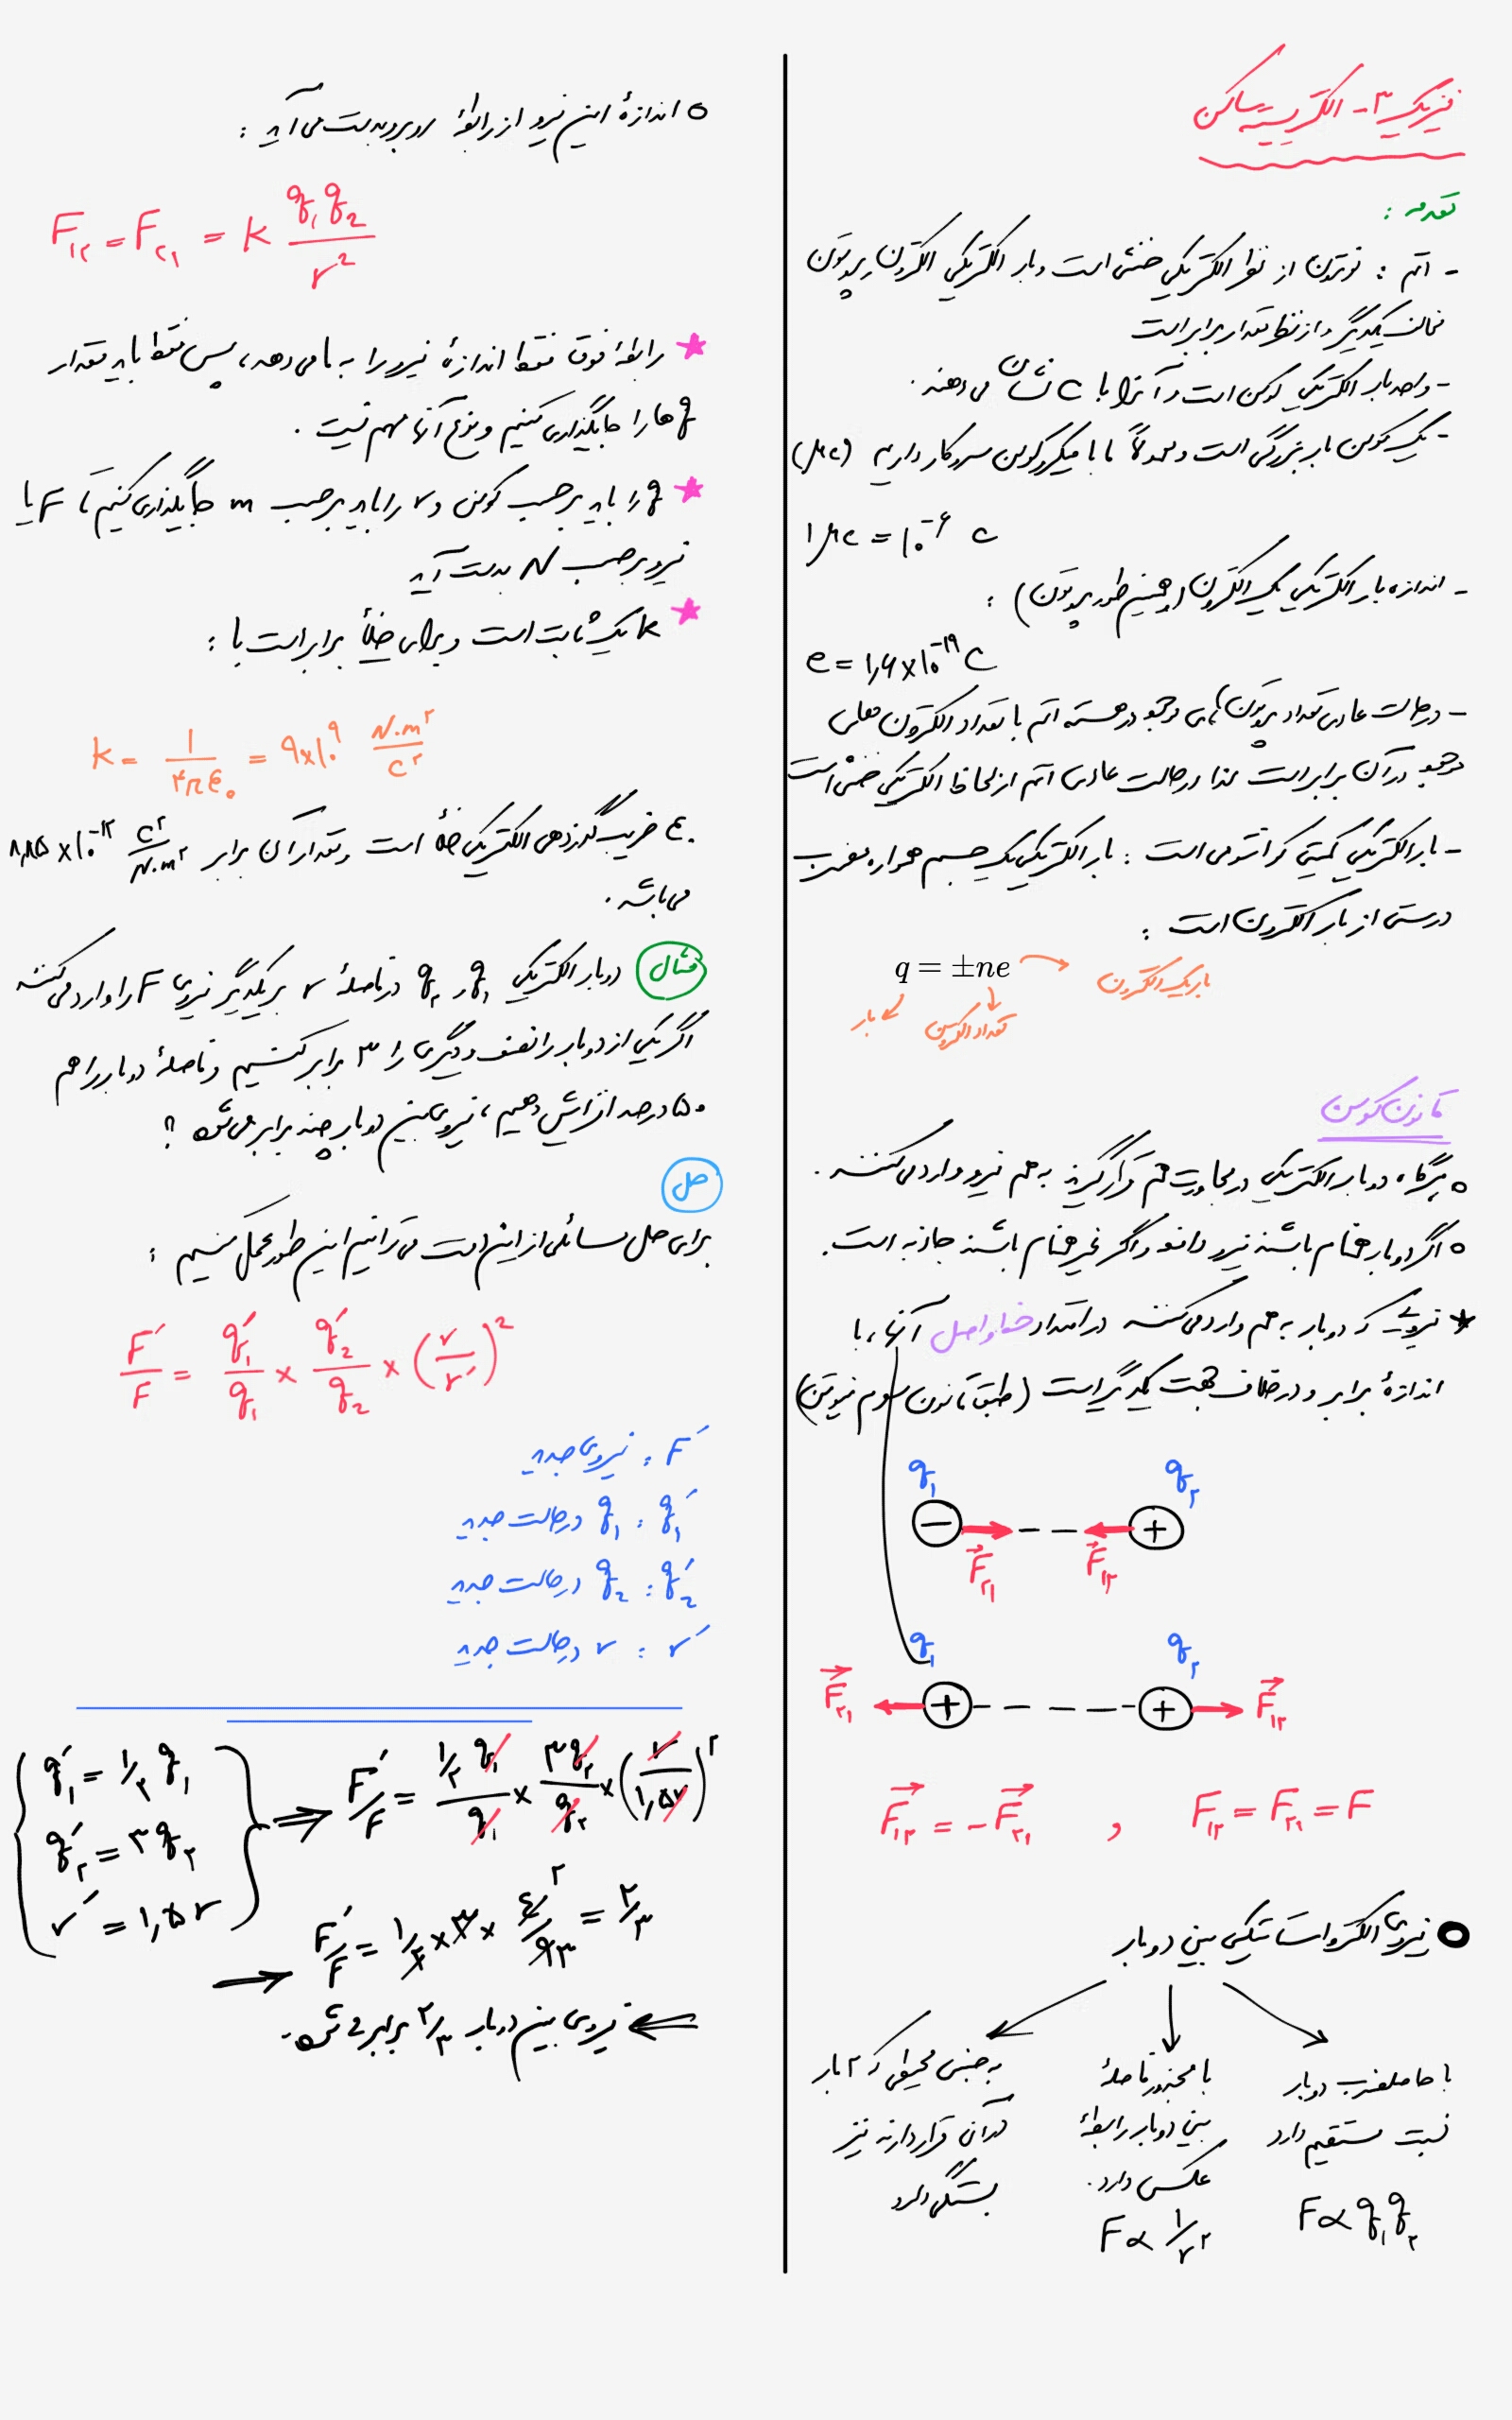 فیزیک ۳ - الکتریسیته ساکن
مقدمه :
- اتم : نوترون از نظر الکتریکی خنثی است و بار الکتریکی الکترون و پروتون
مخالف یکدیگر و از نظر مقدار برابر است
- واحد بار الکتریکی کولن است و آنرا با C نشان می دهند.
- یک کولن بار بزرگی است و معمولاً ما با میکروکولن سروکار داریم (μc)
۱μc = ۱۰⁻⁶ c
- اندازه بار الکتریکی یک الکترون (و همینطور پروتون) :
e = ۱٫۶×۱۰⁻¹⁹ C
- در حالت عادی تعداد پروتون های موجود در هسته اتم با تعداد الکترون های
موجود در آن برابر است لذا در حالت عادی اتم از لحاظ الکتریکی خنثی است
- بار الکتریکی کمیتی کوانتومی است : بار الکتریکی یک جسم همواره مضرب
درستی از بار الکترون است :
q = ±ne
بار یک الکترون
بار
تعداد الکترون
قانون کولن
○ هرگاه دو بار الکتریکی در مجاورت هم قرار گیرند به هم نیرو وارد می کنند.
○ اگر دو بار همنام باشند نیرو دافعه و اگر غیر همنام باشند جاذبه است.
* نیرویی که دو بار به هم وارد می کنند در امتداد خط واصل آنها، با
اندازهٔ برابر و در خلاف جهت یکدیگر است (طبق قانون سوم نیوتن)
q₁ q₂
− +
F⃗₂₁ F⃗₁₂
q₁ q₂
F⃗₂₁ + + F⃗₁₂
F⃗₁₂ = −F⃗₂₁ , F₁₂ = F₂₁ = F
○ نیروی الکترواستاتیکی بین دو بار
با حاصلضرب دو بار
نسبت مستقیم دارد
F ∝ q₁q₂
با مجذور فاصلهٔ
بین دو بار رابطهٔ
عکس دارد.
F ∝ ۱/r²
به جنس محیطی که ۲ بار
در آن قرار دارند نیز
بستگی دارد
○ اندازهٔ این نیرو از رابطهٔ روبرو بدست می آید :
F₁₂ = F₂₁ = k q₁q₂/r²
★ رابطهٔ فوق فقط اندازهٔ نیرو را به ما می دهد، پس فقط باید مقدار
q ها را جایگذاری کنیم و نوع آنها مهم نیست.
★ q را باید برحسب کولن و r را باید برحسب m جایگذاری کنیم تا F یا
نیرو برحسب N بدست آید
★ k یک ثابت است و برای خلأ برابر است با :
k = ۱/۴πε₀ = ۹×۱۰⁹ N.m²/C²
ε₀ ضریب گذردهی الکتریکی خلأ است و مقدار آن برابر ۸٫۸۵ × ۱۰⁻¹² C²/N.m²
می باشد.
مثال دو بار الکتریکی q₁ و q₂ در فاصلهٔ r بر یکدیگر نیروی F را وارد می کنند
اگر یکی از دو بار را نصف و دیگری را ۳ برابر کنیم و فاصلهٔ دو بار را هم
۵۰ درصد افزایش دهیم، نیروی بین دو بار چند برابر می شود ؟
حل
برای حل مسائلی از این دست می توانیم این طور عمل کنیم :
F′/F = q₁′/q₁ × q₂′/q₂ × (r/r′)²
F′ : نیروی جدید
q₁′ : q₁ در حالت جدید
q₂′ : q₂ در حالت جدید
r′ : r در حالت جدید
q₁′ = ۱/۲ q₁
q₂′ = ۳q₂
r′ = ۱٫۵r
⇒ F′/F = ۱/۲ q₁/q₁ × ۳q₂/q₂ × (r/۱٫۵r)²
→ F′/F = ۱/۲ × ۳ × ۴/۹ = ۲/۳
⇐ نیروی بین دو بار ۲/۳ برابر می شود.